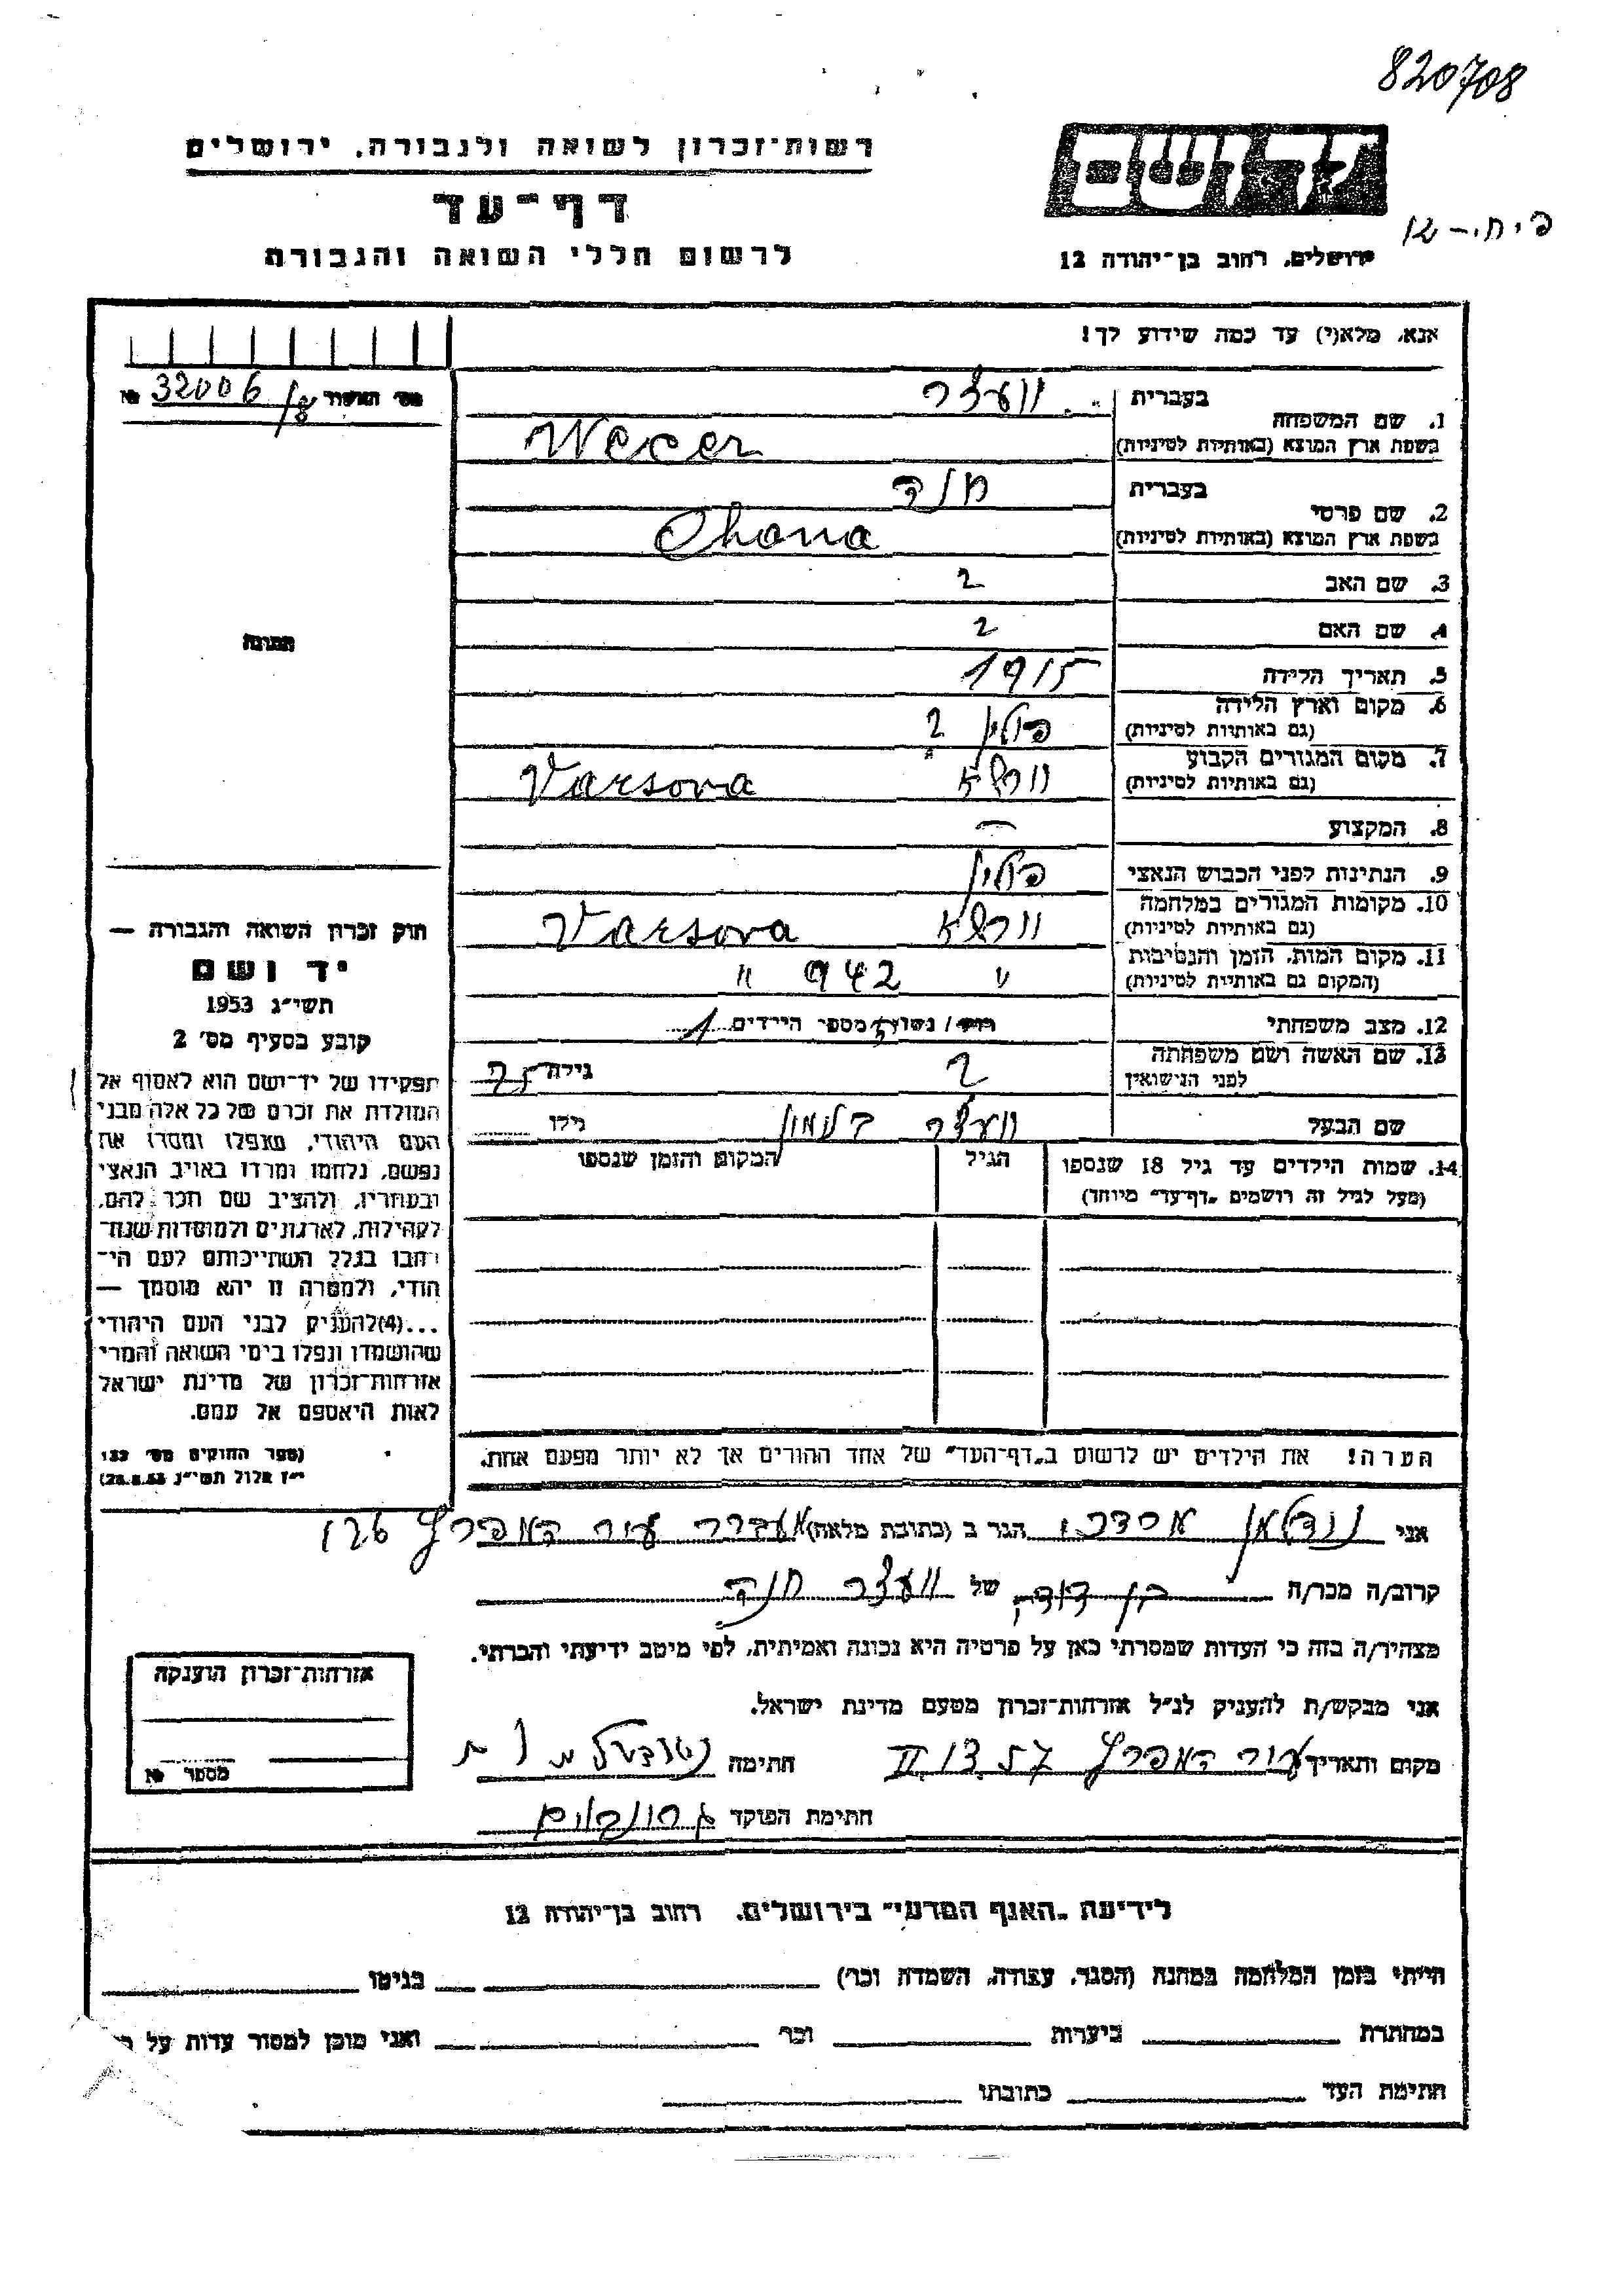 820708
רשות־זכרון לשואה ולגבורה, ירושלים
יד ושם
דף־עד
לרשום חללי השואה והגבורה
ירושלים, רחוב בן־יהודה 12
אנא, מלא(י) עד כמה שידוע לך!
32006/8
בעברית וועצר
1. שם המשפחה
בשפת ארץ המוצא (באותיות לטיניות) Wecer
בעברית חנה
2. שם פרטי
בשפת ארץ המוצא (באותיות לטיניות) Chana
3. שם האב ?
4. שם האם ?
תמונה
5. תאריך הלידה 1915
6. מקום וארץ הלידה פולין ?
(גם באותיות לטיניות)
7. מקום המגורים הקבוע וורשא Varsova
(גם באותיות לטיניות)
8. המקצוע —
9. הנתינות לפני הכבוש הנאצי פולין
10. מקומות המגורים במלחמה וורשא Varsova
(גם באותיות לטיניות)
11. מקום המות, הזמן והנסיבות " 942 "
(המקום גם באותיות לטיניות)
12. מצב משפחתי רווק / נשוי מספר הילדים 1
13. שם האשה ושם משפחתה ? גילה 25
לפני הנישואין
שם הבעל וועצר גילו
14. שמות הילדים עד גיל 18 שנספו הגיל המקום והזמן שנספו
(מעל לגיל זה רושמים "דף־עד" מיוחד)
הערה! את הילדים יש לרשום ב"דף־העד" של אחד ההורים אך לא יותר מפעם אחת.
חוק זכרון השואה והגבורה —
יד ושם
תשי"ג 1953
קובע בסעיף מס' 2
תפקידו של יד־ושם הוא לאסוף אל
המולדת את זכרם של כל אלה מבני
העם היהודי, שנפלו ומסרו את
נפשם, נלחמו ומרדו באויב הנאצי
ובעוזריו, ולהציב שם וזכר להם,
לקהילות, לארגונים ולמוסדות שנח־
רבו בגלל השתייכותם לעם הי־
הודי, ולמטרה זו יהא מוסמך —
...(4)להעניק לבני העם היהודי
שהושמדו ונפלו בימי השואה והמרי
אזרחות־זכרון של מדינת ישראל
לאות היאספם אל עמם.
(ספר החוקים מס' 132
י"ז אלול תשי"ג 28.8.53)
אני הגר ב (כתובת מלאה) 126
קרוב/ה מכר/ה בן דודה של וועצר חנה
מצהיר/ה בזה כי העדות שמסרתי כאן על פרטיה היא נכונה ואמיתית, לפי מיטב ידיעתי והכרתי.
אני מבקש/ת להעניק לנ"ל אזרחות־זכרון מטעם מדינת ישראל.
מקום ותאריך 13.57.II חתימה
חתימת הפוקד
אזרחות־זכרון הוענקה
מספר №
לידיעת "האגף המדעי" בירושלים, רחוב בן־יהודה 12
הייתי בזמן המלחמה במחנה (הסגר, עבודה, השמדה וכו') בגיטו
במחתרת ביערות וכו' ואני מוכן למסור עדות על
חתימת העד כתובתו